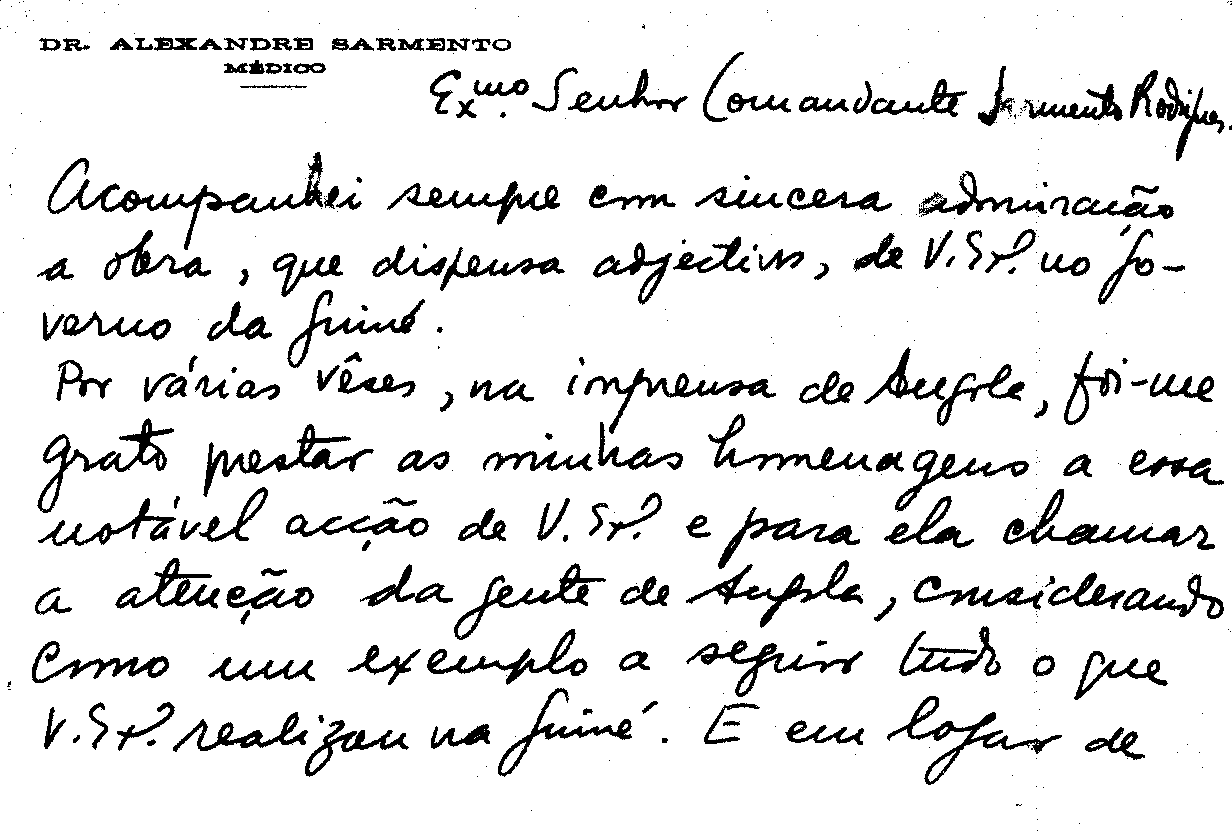 DR. ALEXANDRE SARMENTO
MÉDICO
Exmo. Senhor Comandante Sarmento Rodrigues.
Acompanhei sempre com sincera admiração
a obra, que dispensa adjectivos, de V. Exª. no Go-
verno da Guiné.
Por várias vêses, na imprensa de Angola, foi-me
grato prestar as minhas homenagens a essa
notável acção de V. Exª. e para ela chamar
a atenção da gente de Angola, considerando
como um exemplo a seguir tudo o que
V. Exª. realizou na Guiné. E em logar de